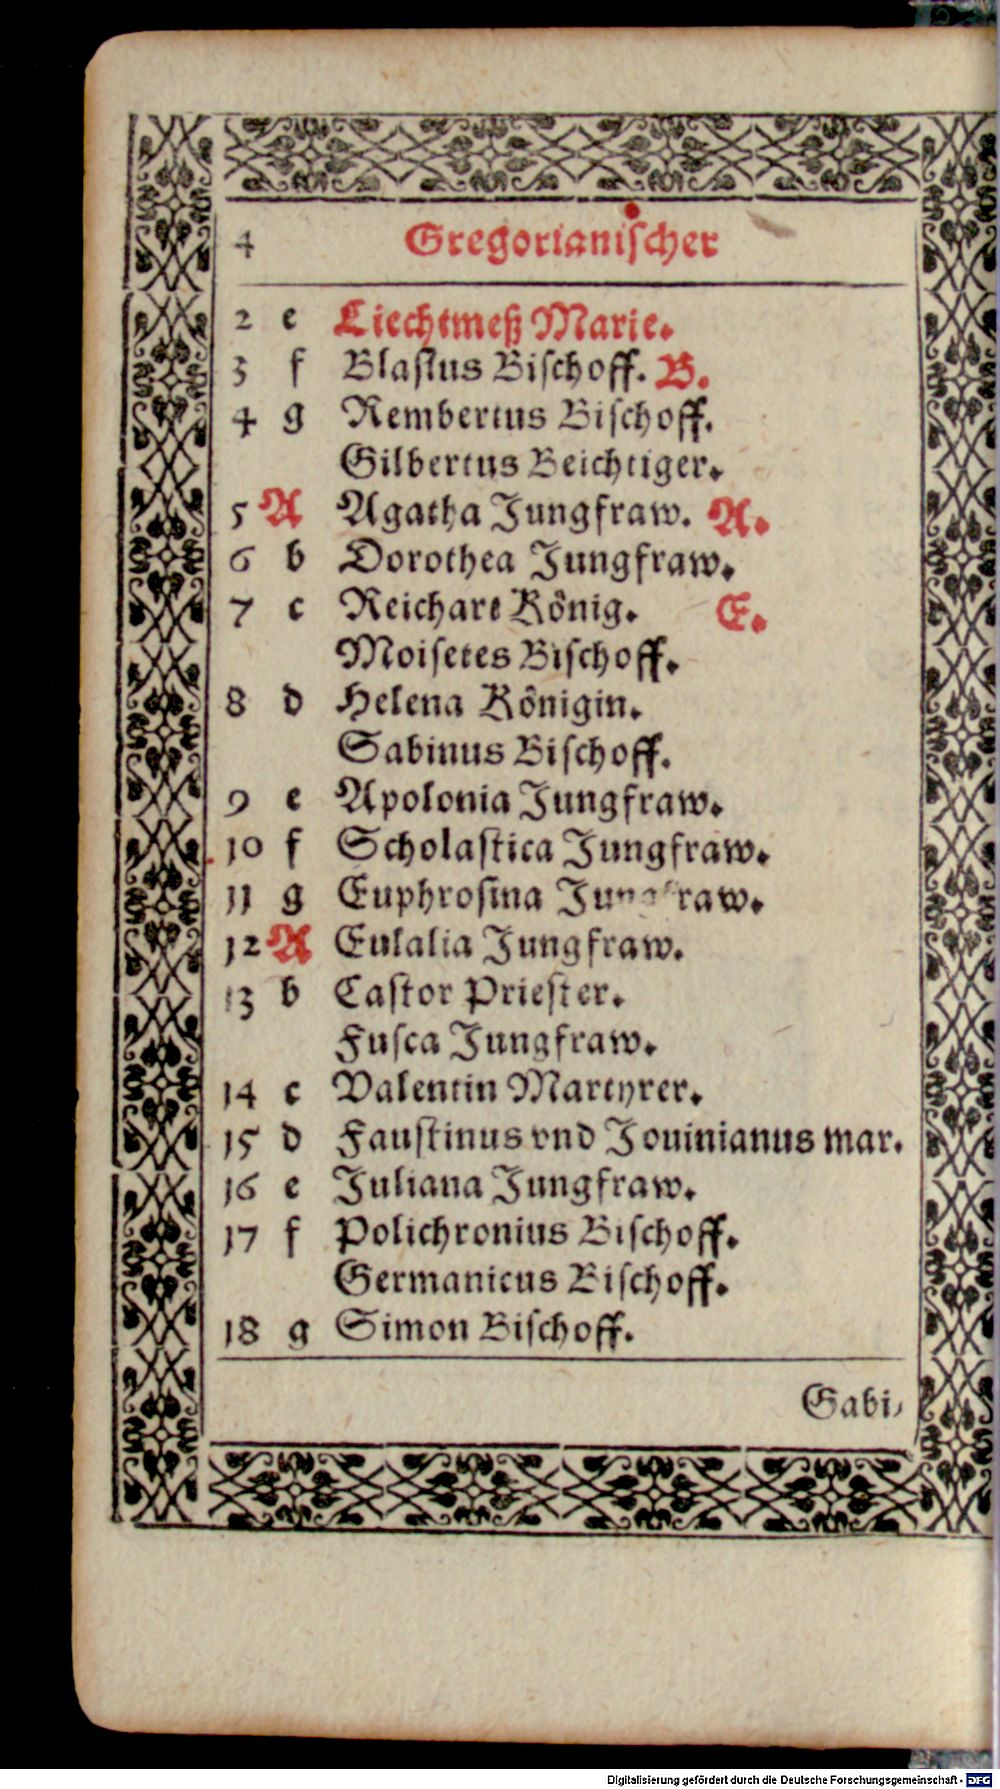 4 Gregorianischer
2 e Liechtmeß Marie.
3 f Blasius Bischoff. B.
4 g Rembertus Bischoff.
Gilbertus Beichtiger.
5 A Agatha Jungfraw. A.
6 b Dorothea Jungfraw.
7 c Reichart König. E.
Moisetes Bischoff.
8 d Helena Königin.
Sabinus Bischoff.
9 e Apolonia Jungfraw.
10 f Scholastica Jungfraw.
11 g Euphrosina Jungfraw.
12 A Eulalia Jungfraw.
13 b Castor Priester.
Fusca Jungfraw.
14 c Valentin Martyrer.
15 d Faustinus vnd Jouinianus mar.
16 e Juliana Jungfraw.
17 f Polichronius Bischoff.
Germanicus Bischoff.
18 g Simon Bischoff.
Gabi⸗
Digitalisierung gefördert durch die Deutsche Forschungsgemeinschaft - DFG